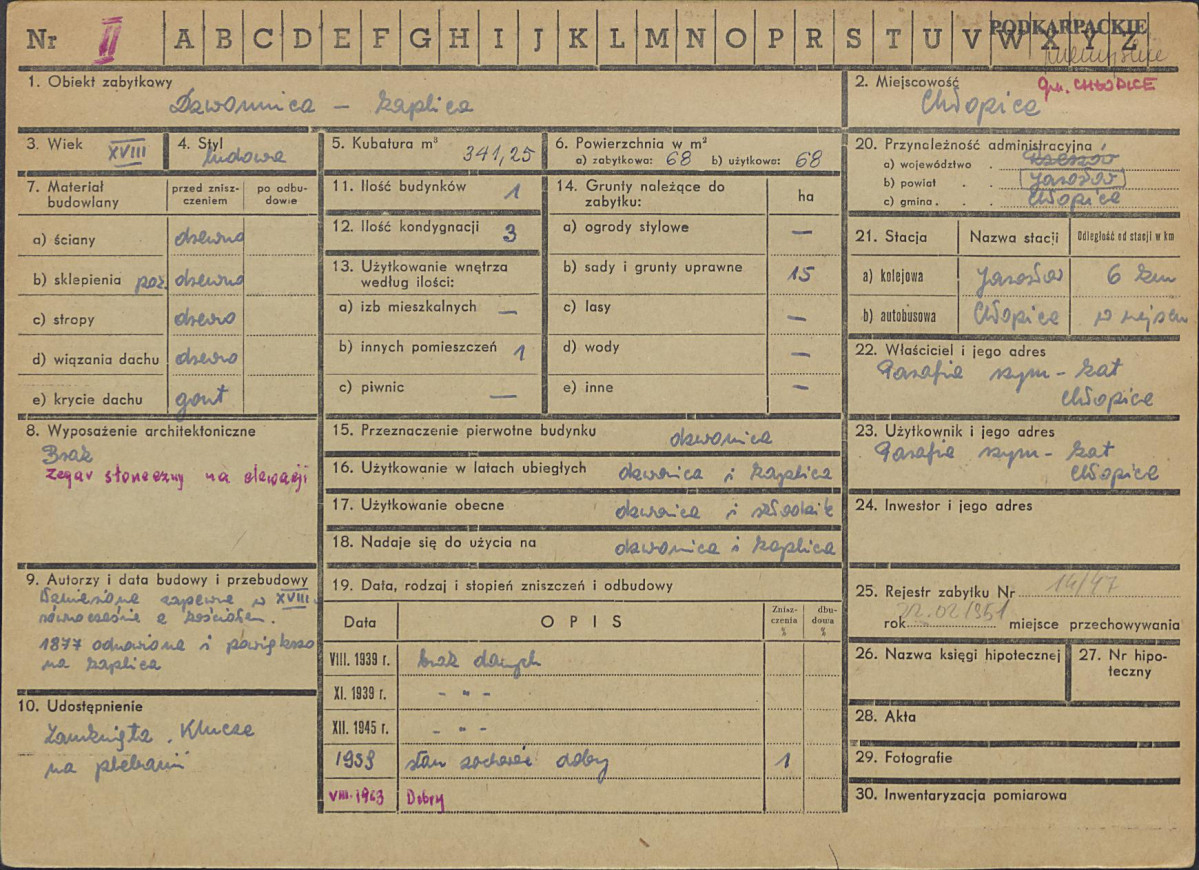 Nr II A B C D E F G H I J K L M N O P R S T U V W X Y Z
PODKARPACKIE
przemyskie
1. Obiekt zabytkowy
Dzwonnica – kaplica
2. Miejscowość
gm. CHŁOPICE
Chłopice
3. Wiek XVIII
4. Styl ludowa
5. Kubatura m³ 341,25
6. Powierzchnia w m²
a) zabytkowa: 68 b) użytkowa: 68
7. Materiał budowlany
przed zniszczeniem
po odbudowie
a) ściany drewno
b) sklepienia poz. drewno
c) stropy drewno
d) wiązania dachu drewno
e) krycie dachu gont
8. Wyposażenie architektoniczne
Brak
zegar słoneczny na elewacji
9. Autorzy i data budowy i przebudowy
wzniesiona zapewne w XVIII
równocześnie z kościołem.
1877 odnowiona i powiększo
na kaplica
10. Udostępnienie
Zamknięta. Klucze
na plebanii
11. Ilość budynków 1
12. Ilość kondygnacji 3
13. Użytkowanie wnętrza
według ilości:
a) izb mieszkalnych —
b) innych pomieszczeń 1
c) piwnic —
14. Grunty należące do
zabytku:
ha
a) ogrody stylowe —
b) sady i grunty uprawne 15
c) lasy —
d) wody —
e) inne —
15. Przeznaczenie pierwotne budynku dzwonnica
16. Użytkowanie w latach ubiegłych dzwonnica i kaplica
17. Użytkowanie obecne dzwonnica i składzik
18. Nadaje się do użycia na dzwonnica i kaplica
19. Data, rodzaj i stopień zniszczeń i odbudowy
Data
OPIS
Zniszczenia %
dbudowa %
VIII. 1939 r. brak danych
XI. 1939 r. - " -
XII. 1945 r. - " -
1959 stan zachow. dobry 1
VIII-1963 Dobry
20. Przynależność administracyjna
a) województwo . Rzeszów
b) powiat . . Jarosław
c) gmina . . . Chłopice
21. Stacja
Nazwa stacji
Odległość od stacji w km
a) kolejowa Jarosław 6 km
b) autobusowa Chłopice w miejscu
22. Właściciel i jego adres
Parafia rzym-kat
Chłopice
23. Użytkownik i jego adres
Parafia rzym-kat
Chłopice
24. Inwestor i jego adres
25. Rejestr zabytku Nr 14/47
rok 22.02.1951 miejsce przechowywania
26. Nazwa księgi hipotecznej
27. Nr hipoteczny
28. Akta
29. Fotografie
30. Inwentaryzacja pomiarowa